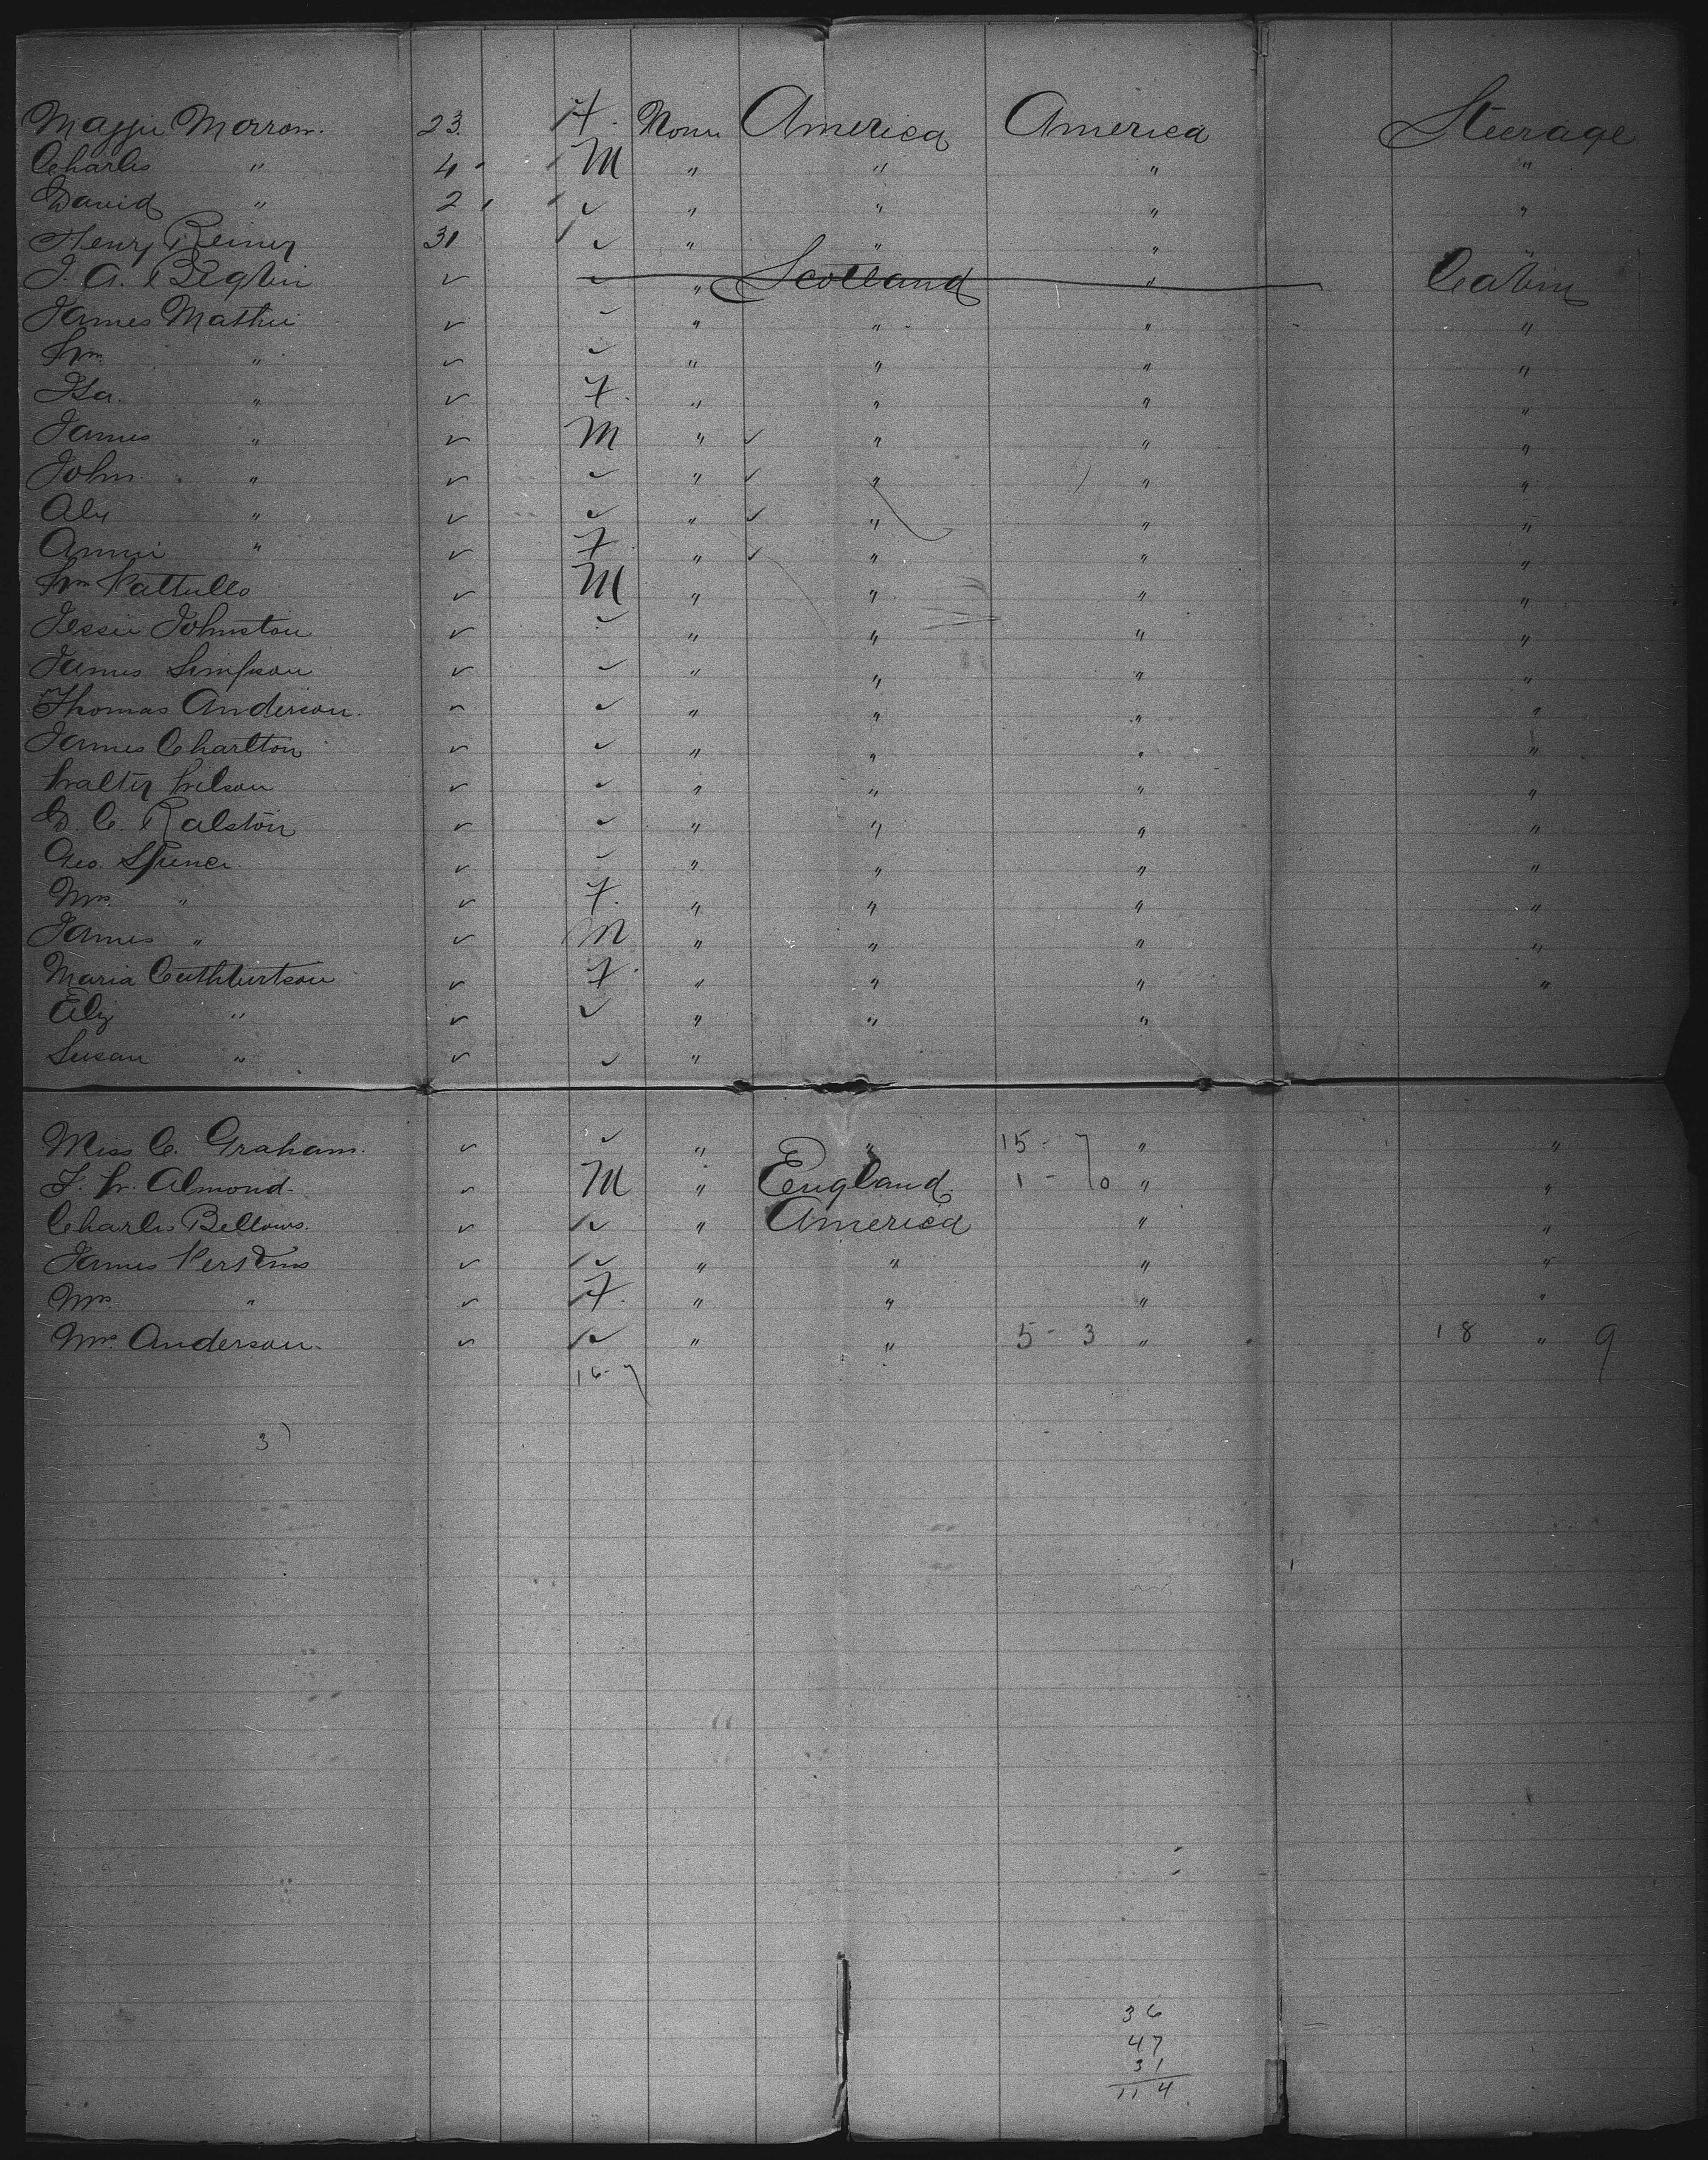 Maggie Morrow. 23. F. None America America Steerage
Charles " 4 M " " " "
David " 2 ✓ " " " "
Henry Reiney 31 ✓ " " " "
J. A. Begbie ✓ ✓ " Scotland " Cabin
James Mathie ✓ ✓ " " " "
Wm " ✓ ✓ " " " "
Isa. " ✓ F. " " " "
James " ✓ M " ✓ " " "
John " ✓ ✓ " ✓ " " "
Alex " ✓ ✓ " ✓ " " "
Annie " ✓ F " ✓ " " "
Wm Pattullo ✓ M " " " "
Jessie Johnston ✓ ✓ " " " "
James Simpson ✓ ✓ " " " "
Thomas Anderson. ✓ ✓ " " " "
James Charlton ✓ ✓ " " " "
Walter Wilson ✓ ✓ " " " "
D. C. Ralston ✓ ✓ " " " "
Geo. Spence ✓ ✓ " " " "
Mrs " ✓ F. " " " "
James " ✓ M " " " "
Maria Cuthbertson ✓ F. " " " "
Eliz " ✓ ✓ " " "
Susan " ✓ ✓ "
Miss C. Graham. ✓ ✓ " " 15 - 7 " "
F. W. Almond. ✓ M " England. 1 - 0 " "
Charles Bellows. ✓ ✓ " America " "
James Perkins ✓ ✓ " " " "
Mrs. " ✓ F. " " " "
Mrs. Anderson. ✓ ✓ " " 5 - 3 " 18 " 9
16 - 7
3
36
47
31
114